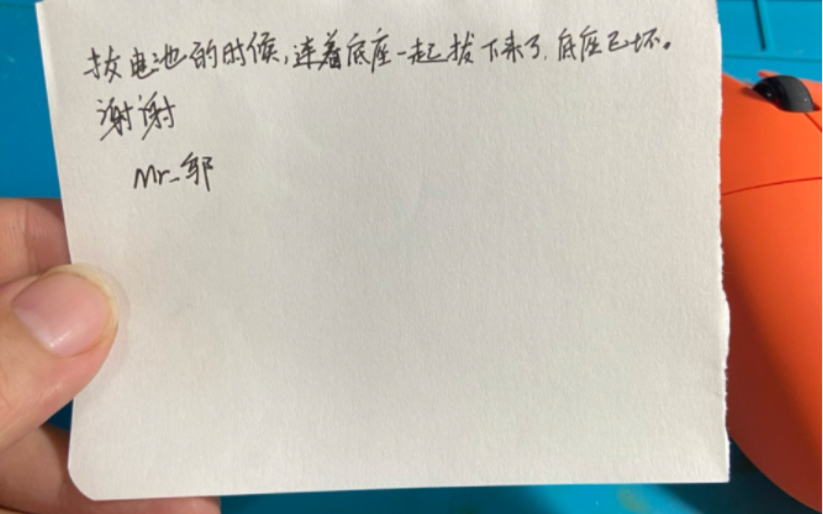 拔电池的时候,连着底座一起拔下来了,底座已坏。
谢谢
Mr_邹